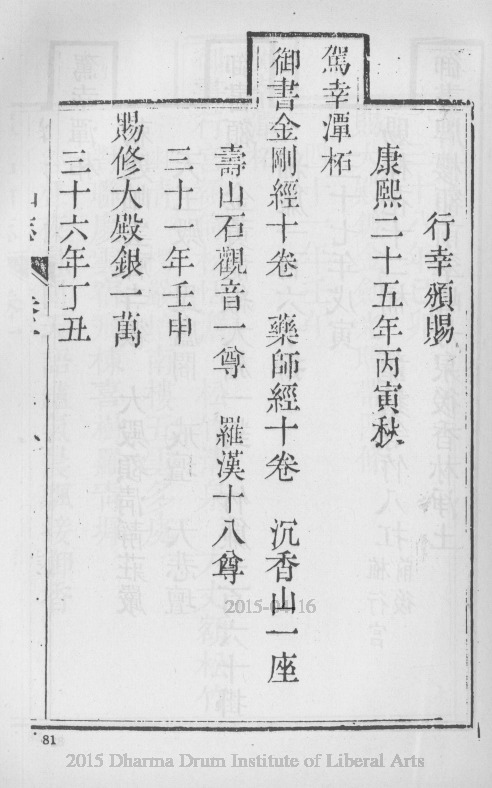 行幸頒賜
康熙二十五年丙寅秋
駕幸潭柘
御書金剛經十卷 藥師經十卷 沉香山一座
壽山石觀音一尊 羅漢十八尊
三十一年壬申
賜修大殿銀一萬
三十六年丁丑
81
2015-04-16
2015 Dharma Drum Institute of Liberal Arts